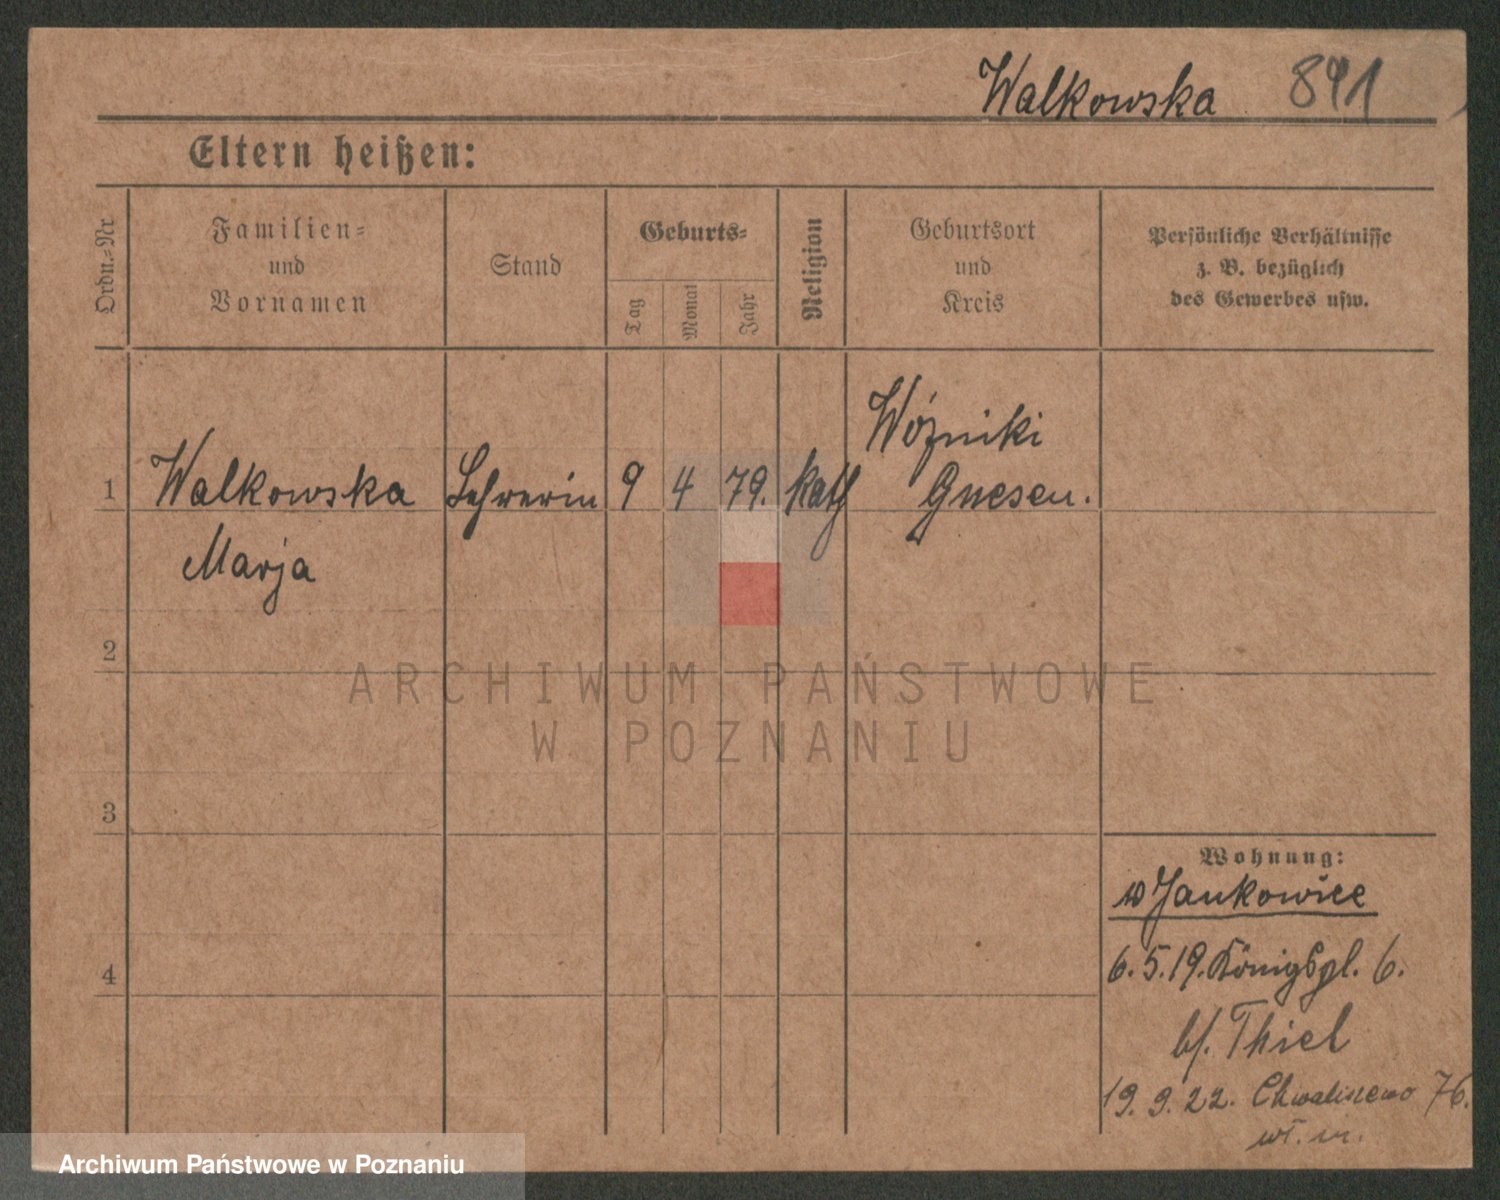 Walkowska 891
Eltern heißen:
Ordn.-Nr
Familien-
und
Vornamen
Stand
Geburts-
Tag
Monat
Jahr
Religion
Geburtsort
und
Kreis
Persönliche Verhältnisse
z. B. bezüglich
des Gewerbes usw.
Wózniki
1 Walkowska Lehrerin 9 4 79. kath Gnesen.
Marja
2
ARCHIWUM PAŃSTWOWE
W POZNANIU
3
Wohnung:
w Jankowice
6. 5. 19. Königspl. 6.
b/. Thiel
4
19. 9. 22. Chwaliszewo 76.
wł. m.
Archiwum Państwowe w Poznaniu